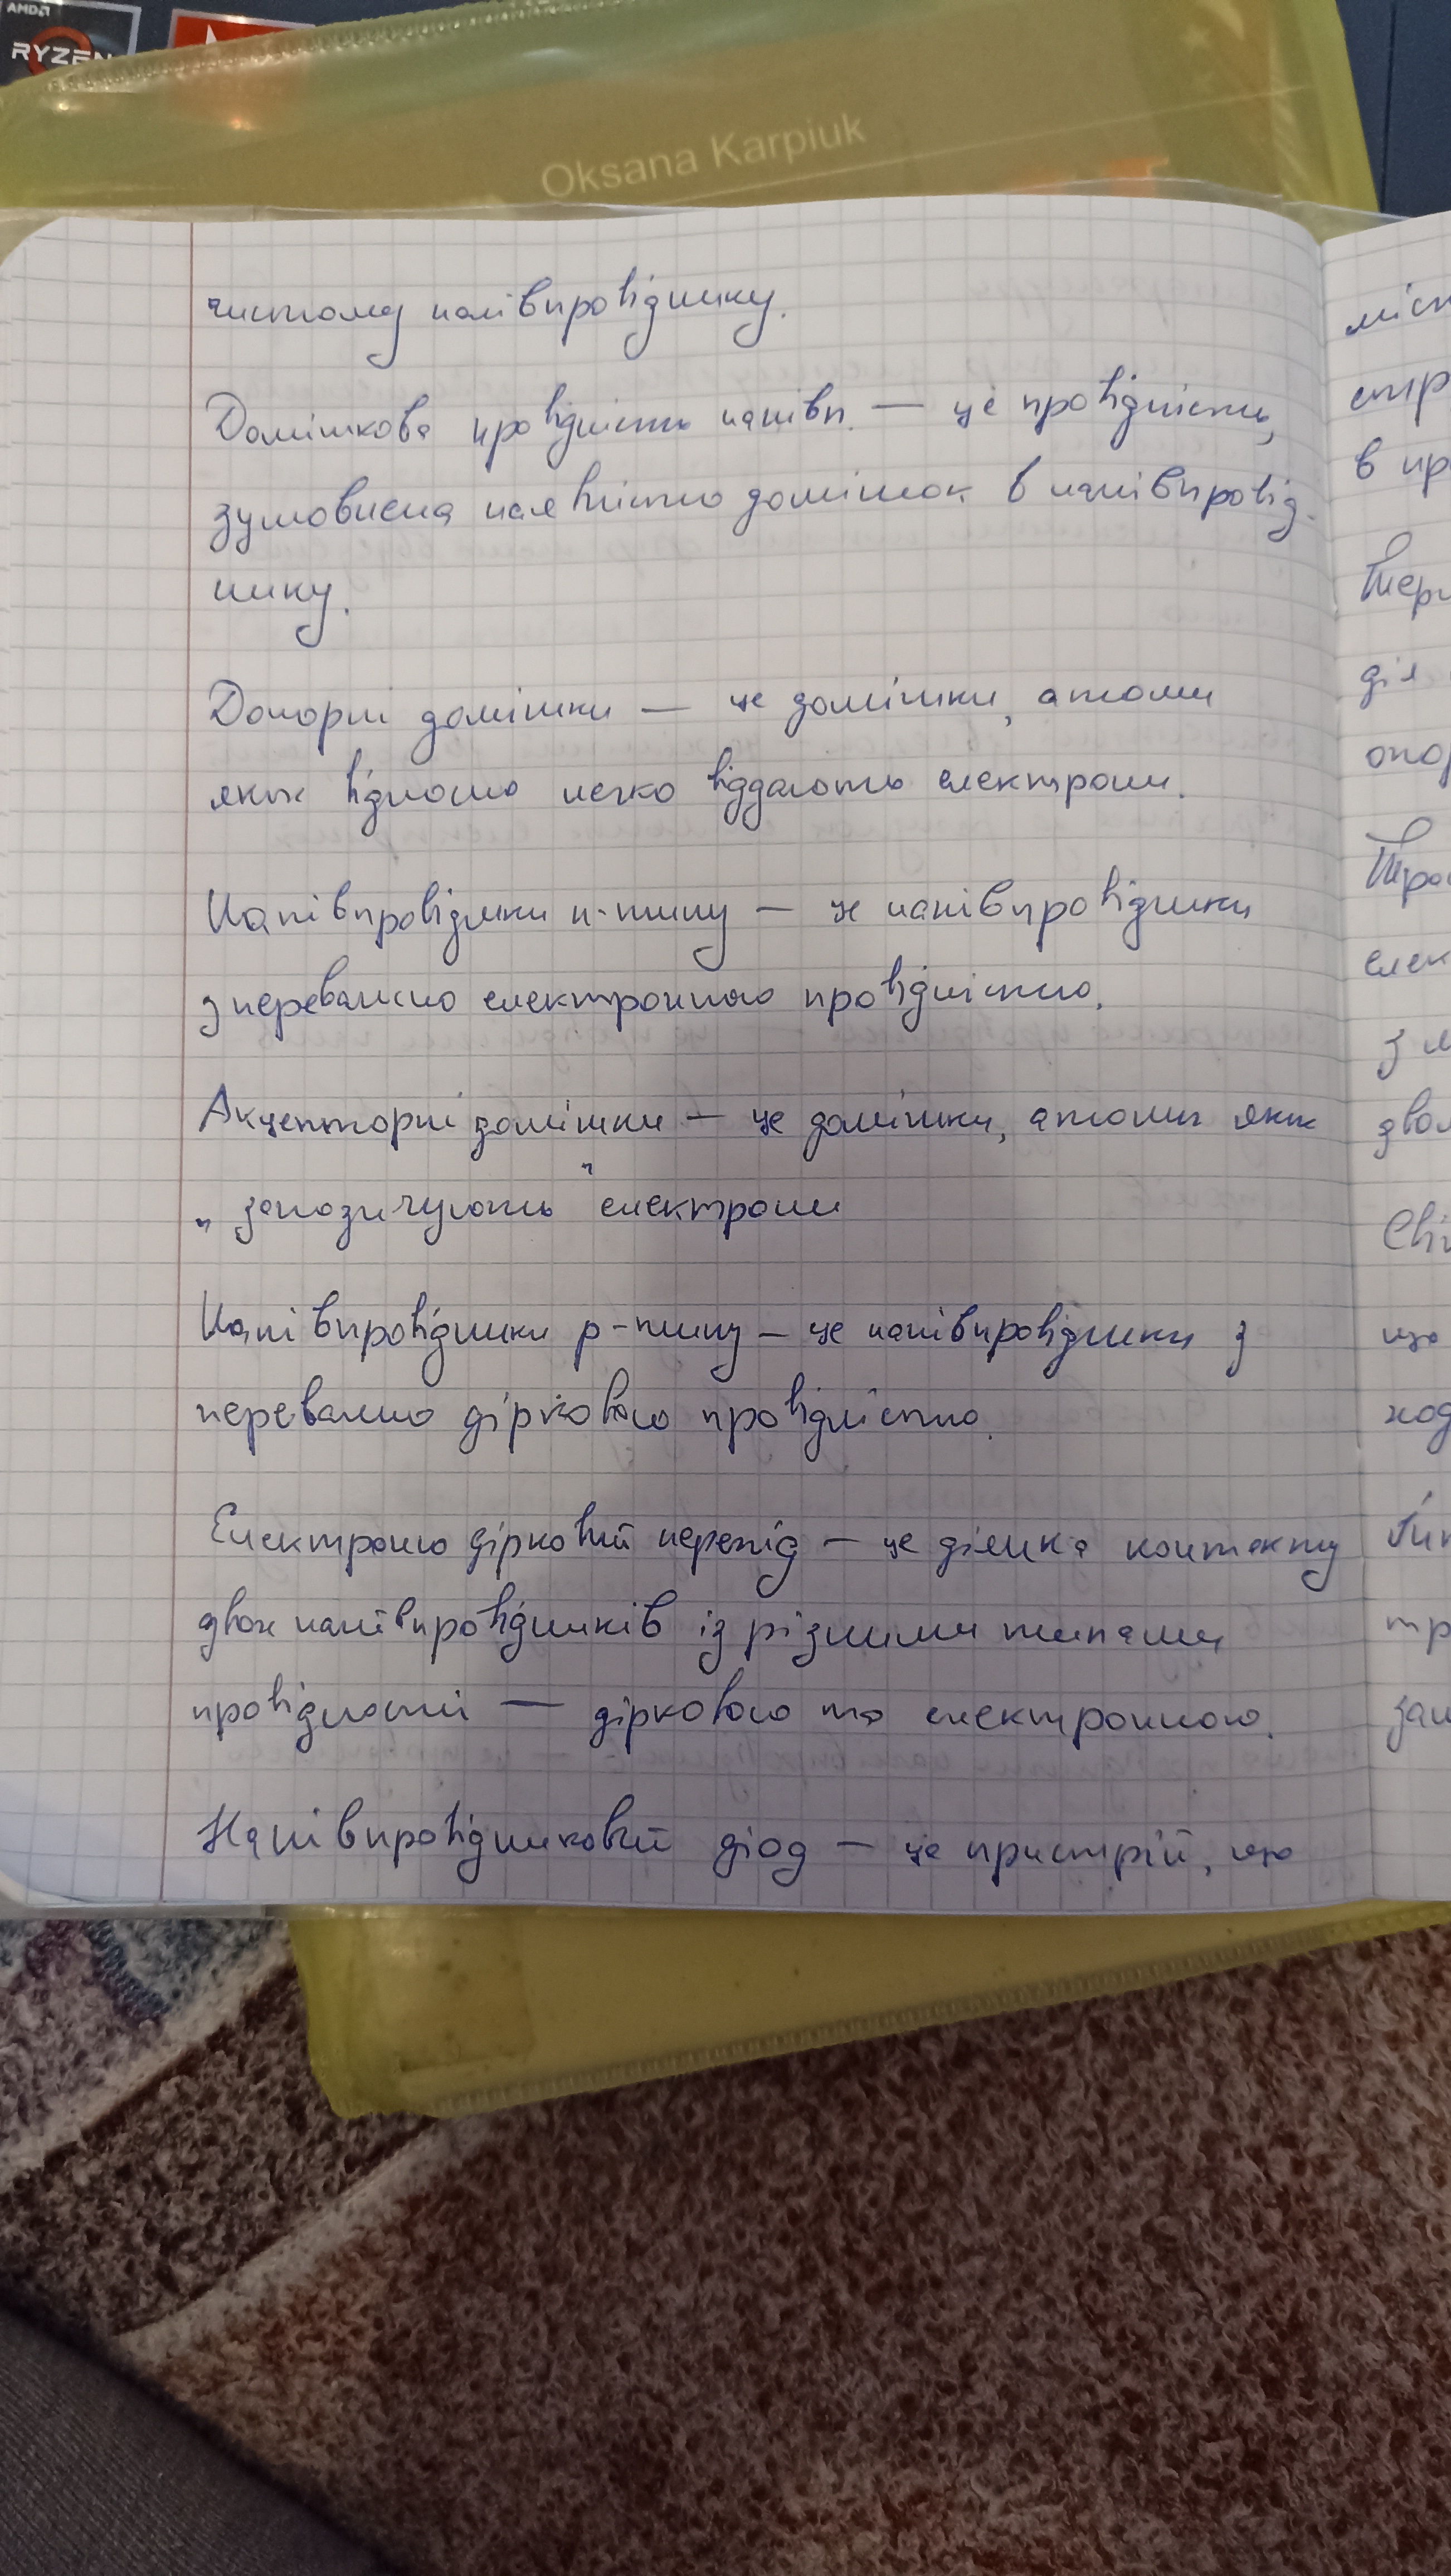 AMD
RYZEN
Oksana Karpiuk
чистому напівпровіднику.
Домішкова провідність напівп. — це провідність,
зумовлена наявністю домішок в напівпровід-
нику.
Донорні домішки — це домішки, атоми
яких відносно легко віддають електрони.
Напівпровідники n-типу — це напівпровідники
з переважно електронною провідністю.
Акцепторні домішки — це домішки, атоми яких
„запозичують" електрони
Напівпровідники p-типу — це напівпровідники з
переважно дірковою провідністю.
Електронно дірковий перехід — це ділянка контакту
двох напівпровідників із різними типами
провідності — дірковою та електронною.
Напівпровідниковий діод — це пристрій, що
міст
стр
в пр
Терм
дія
опор
Тран
елек
з м
двом
Світ
що
ход
тр